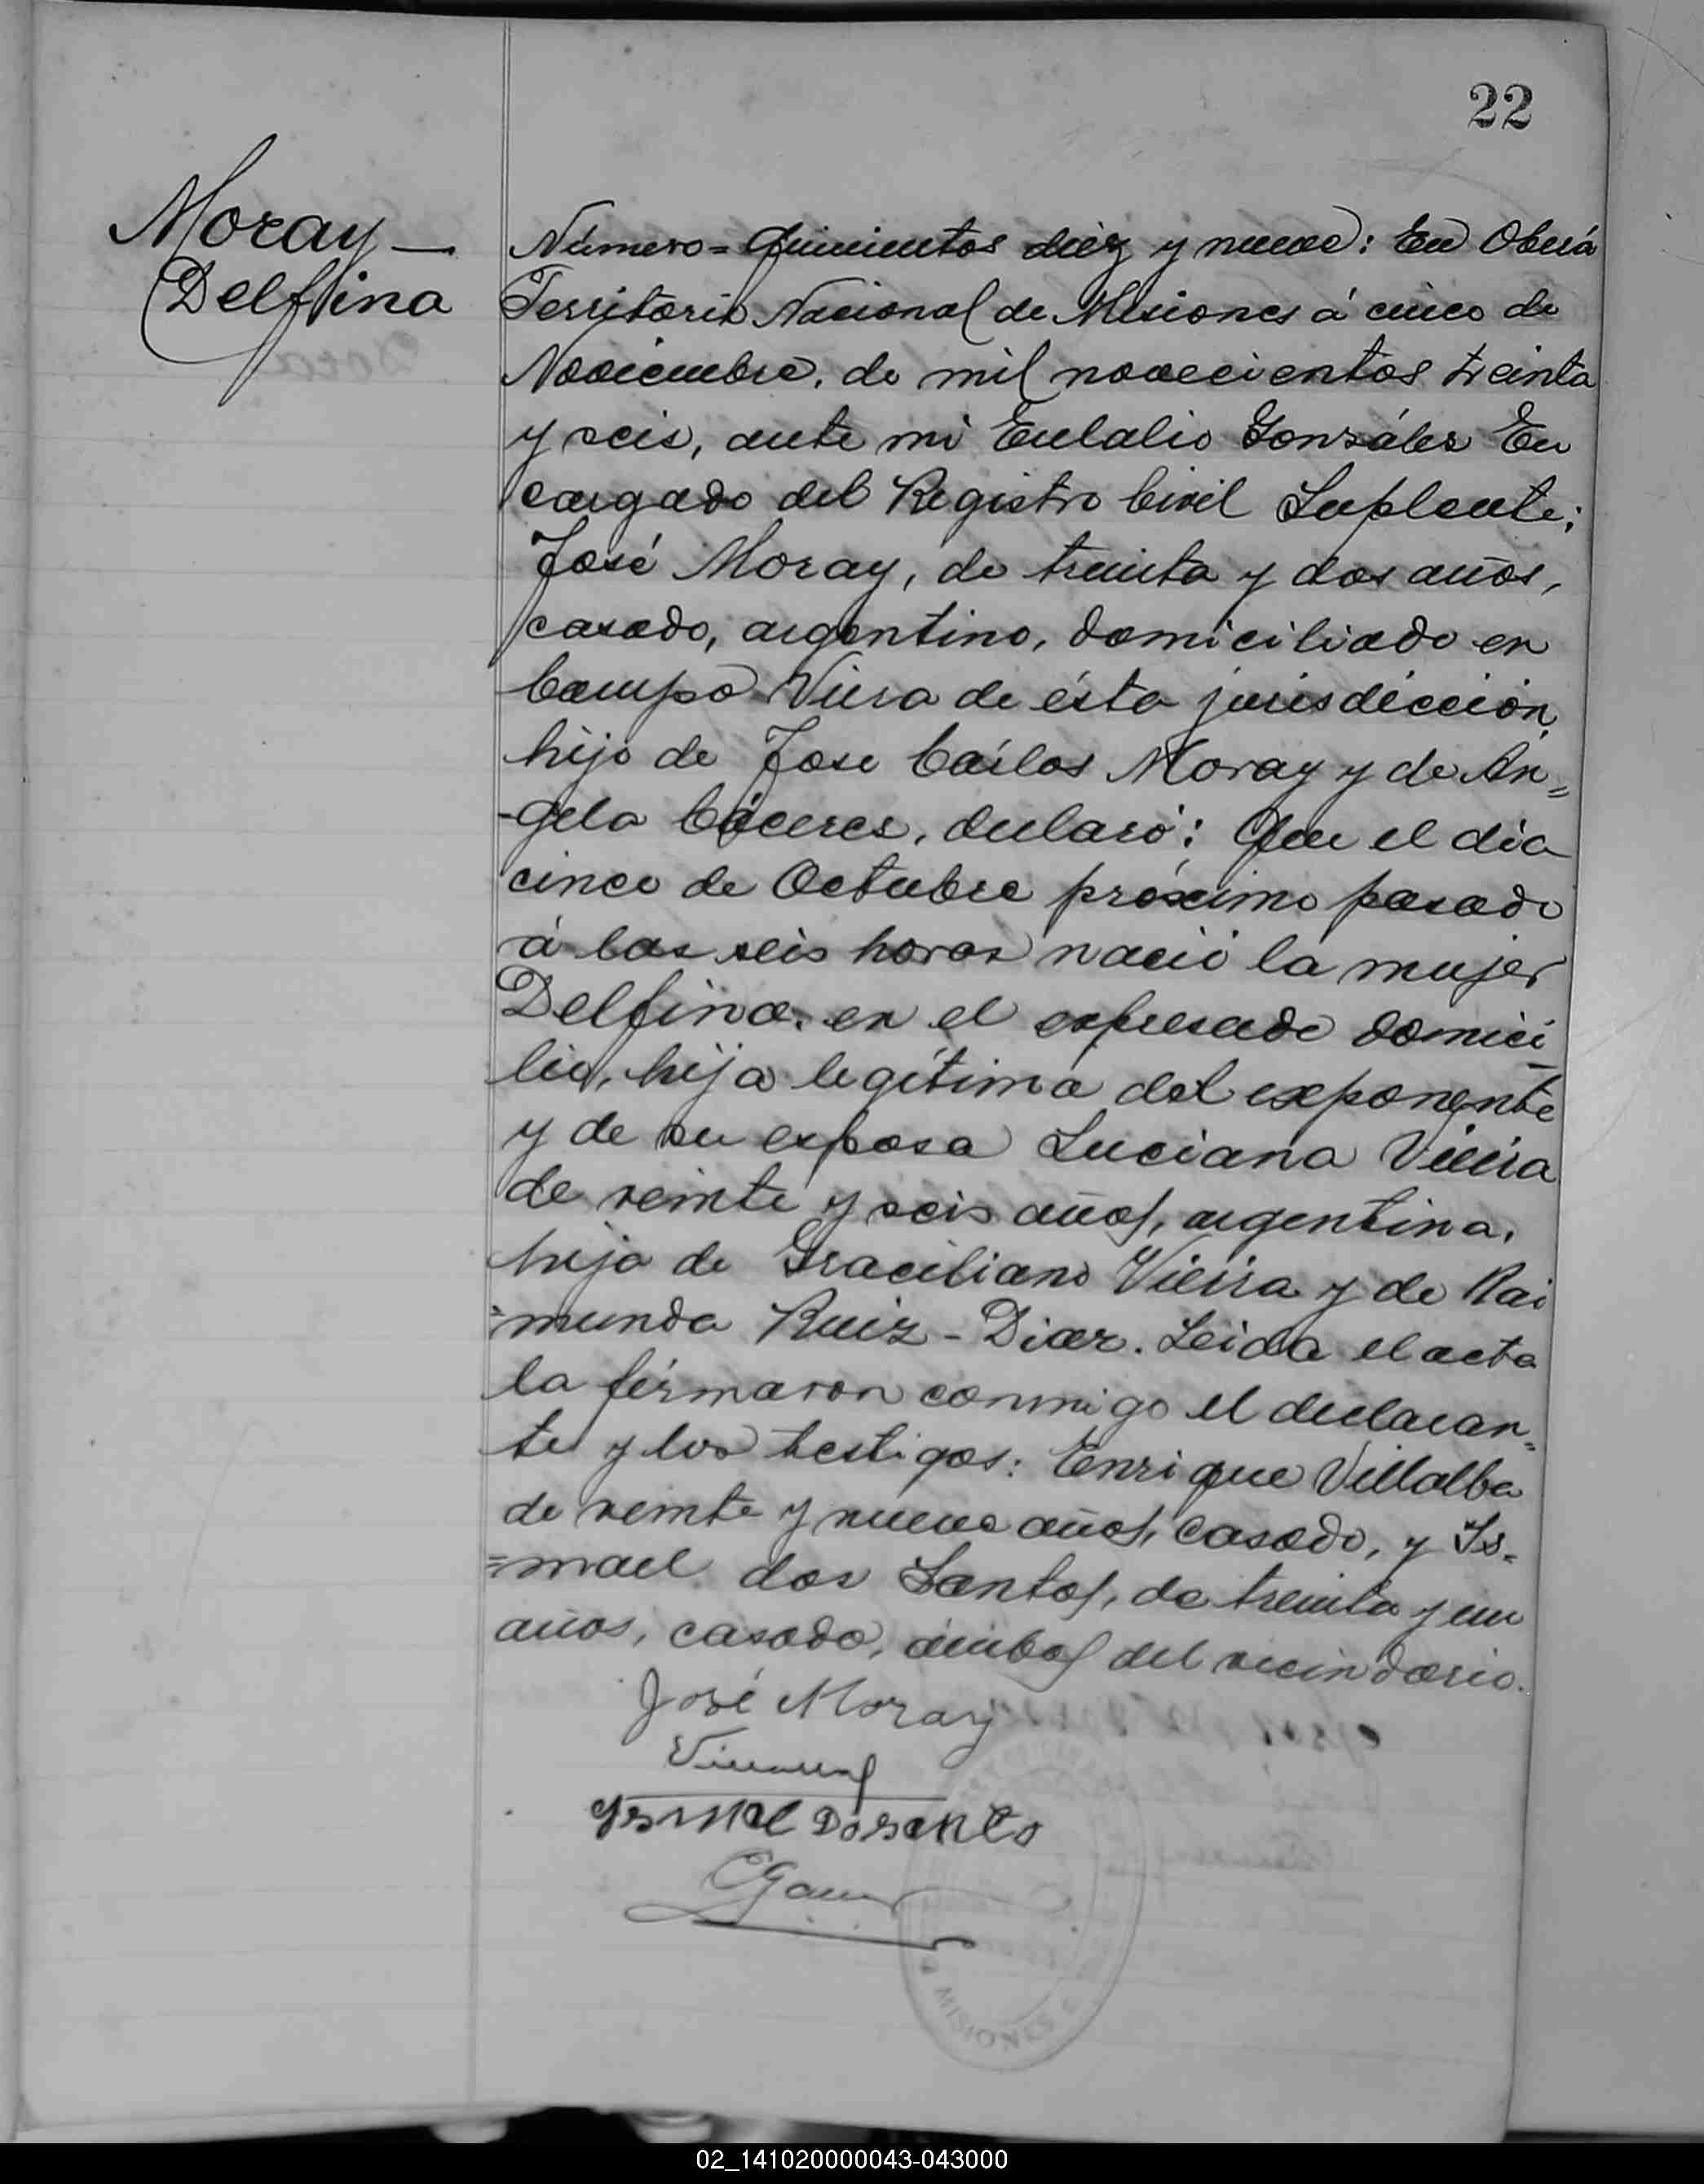 22
Moray —
Delfina
Número = Quinientos diez y nueve: En Oberá
Territorio Nacional de Misiones á cinco de
Noviembre, de mil novecientos treinta
y seis, ante mi Eulalio Gonzáles En
cargado del Registro Civil Suplente;
José Moray, de treinta y dos años,
casado, argentino, domiciliado en
Campo Viera de ésta jurisdicción,
hijo de Jose Cárlos Moray y de An=
-gela Cáceres, declaró: Que el dia
cinco de Octubre próximo pasado
á las seis horas nació la mujer
Delfina. en el expresado domici
lio, hija legítima del exponente
y de su esposa Luciana Vieira
de veinte y seis años, argentina,
hija de Graciliano Vieira y de Rai
=munda Ruiz - Diaz. Leida el acta
la firmaron conmigo el declaran=
te y los testigos: Enrique Villalba
de veinte y nueve años, casado, y Is=
=mael dos Santos, de treinta y un
años, casado, ámbos del vecindario.
José Moray
Ismael Dosanto
EGon
MISIONES
02_141020000043-043000